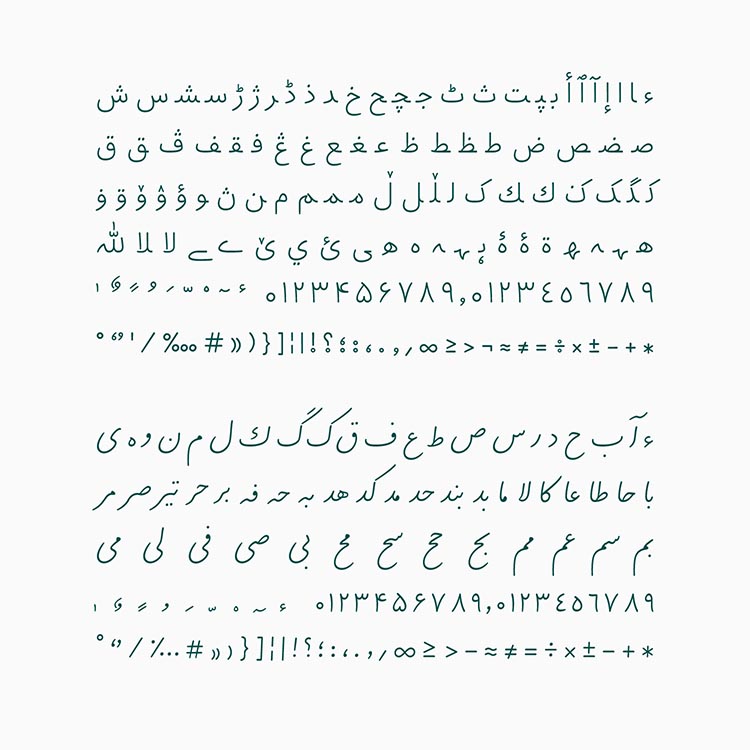 ء ا ا إ آ ٱ أ ب پ ت ث ٹ ج چ ح خ د ذ ڈ ر ژ ڑ س ش س ش
ص ض ص ض ط ظ ط ظ ع غ ع غ ڠ ف ق ف ڤ ق ق
ک گ ک ک ك ك ک ل ڵ ل ڵ م م م م ن ڽ و ؤ ۋ ۆ ۊ ۏ
ه ہ ہ ھ ة ۀ ۀ ہ ہ ہ ه ه ی ئ ي ێ ے ے لا للا لله
۰۱۲۳۴۵۶۷۸۹,٠١٢٣٤٥٦٧٨٩
* + − ± × ÷ = ≠ ≈ ¬ > ≥ ∞ ٫ , . ، : ؛ ؟ ! | ¦ [ { ( » # ‰ / ' “ °
ء آ ب ح د ر س ص ط ع ف ق ک گ ك ل م ن و ه ی
با حا طا عا کا لا ما بد بند حد مد کد هد به حه فه بر حر تیر صر مر
بم سم عم مم بج حج سح مح بی صی فی لی می
۰۱۲۳۴۵۶۷۸۹,٠١٢٣٤٥٦٧٨٩
* + − ± × ÷ = ≠ ≈ − > ≥ ∞ ٫ , . ، : ؛ ؟ ! | ¦ [ { ( » # … ٪ / “ °